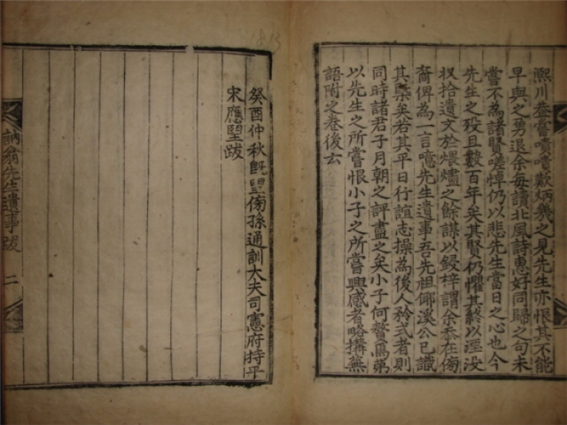 熙川蓋嘗嘖嘖歎炳幾之見先生亦恨其不能
早與之勇退余每讀北風詩惠好同歸之句未
嘗不為諸賢嗟悼仍以悲先生當日之心也今
先生之歿且數百年矣其賢仍懼其終以湮沒
収拾遺文於煨燼之餘謀以鋟梓謂余忝在傍
裔俾為一言噫先生遺事吾先祖倻溪公已識
其槩矣若其平日行誼志操為後人矜式者則
同時諸君子月朝之評盡之矣小子何贅焉第
以先生之所嘗恨小子之所嘗興感者略搆蕪
語附之卷後云
癸酉仲秋旣望傍孫通訓大夫司憲府持平
宋應跋
訥翁先生遺事跋
二